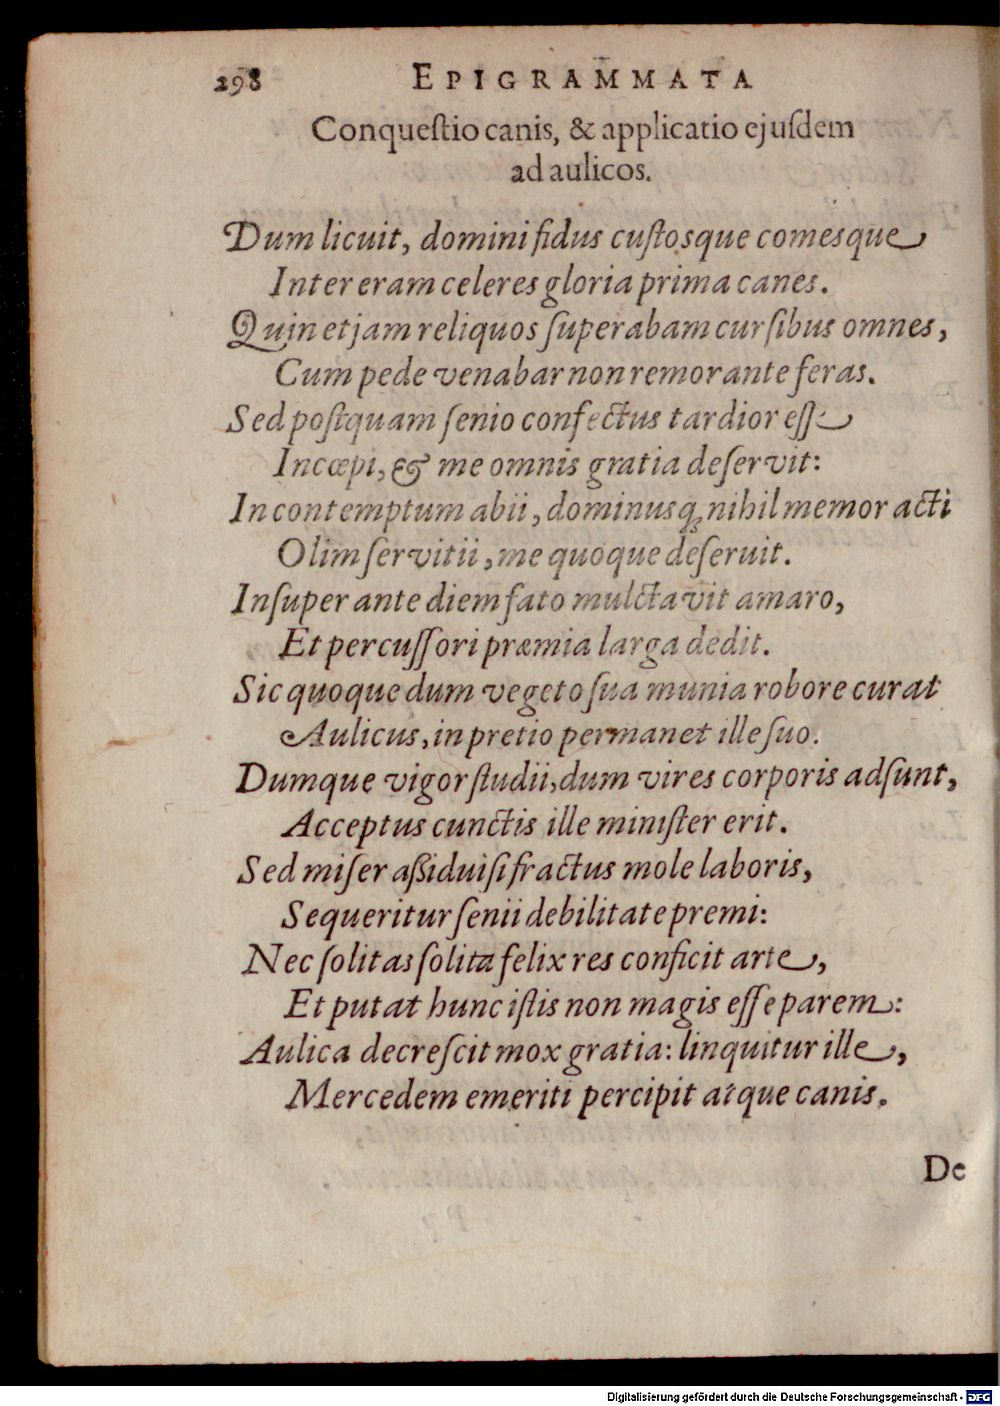 298 EPIGRAMMATA
Conqueſtio canis, & applicatio ejuſdem
ad aulicos.
Dum licuit, domini fidus cuſtosque comesque
Inter eram celeres gloria prima canes.
Quin etjam reliquos ſuperabam curſibus omnes,
Cum pede venabar non remorante feras.
Sed poſtquam ſenio confectus tardior eſſe
Incœpi, & me omnis gratia deſervit:
In contemptum abii, dominusq; nihil memor acti
Olim ſervitii, me quoque deſeruit.
Inſuper ante diem fato mulctavit amaro,
Et percuſſori præmia larga dedit.
Sic quoque dum vegeto ſua munia robore curat
Aulicus, in pretio permanet ille ſuo.
Dumque vigor ſtudii, dum vires corporis adſunt,
Acceptus cunctis ille miniſter erit.
Sed miſer aßidui ſi fractus mole laboris,
Se queritur ſenii debilitate premi:
Nec ſolitas ſolita felix res conficit arte,
Et putat hunc iſtis non magis eſſe parem:
Aulica decreſcit mox gratia: linquitur ille,
Mercedem emeriti percipit atque canis.
De
Digitalisierung gefördert durch die Deutsche Forschungsgemeinschaft - DFG